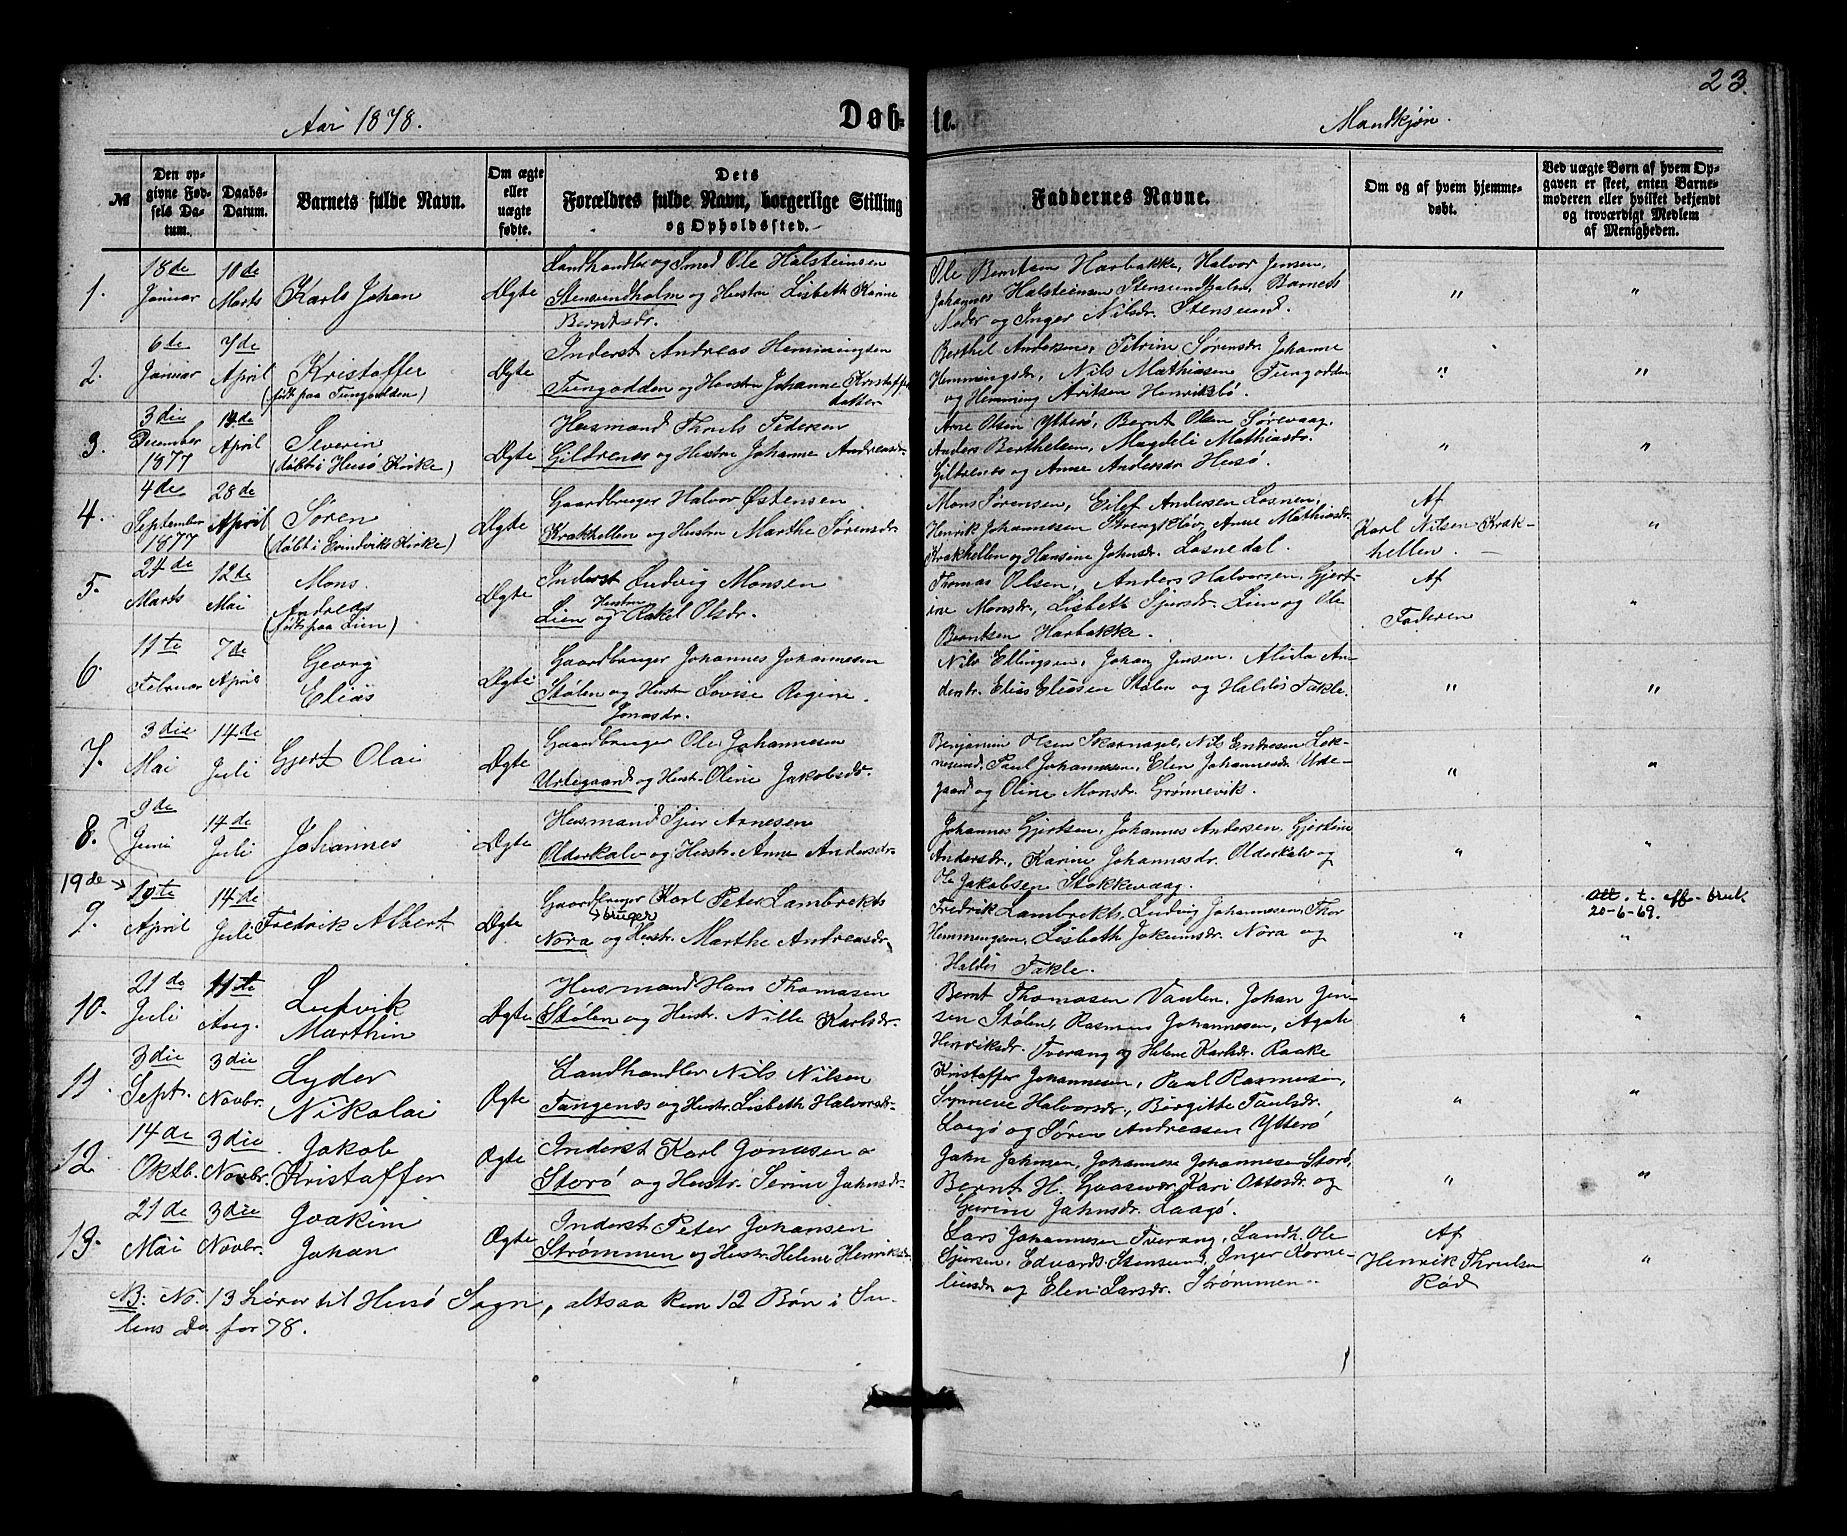 23.
Aar 1878.
Døb-
te.
Mandkjøn.
№
Den op-
givne Fød-
sels Da-
tum.
Daabs-
Datum.
Barnets fulde Navn.
Om ægte
eller
uægte
fødte.
Dets
Forældres fulde Navn, borgerlige Stilling
og Opholdssted.
Faddernes Navne.
Om og af hvem hjemme-
døbt.
Ved uægte Børn af hvem Op-
gaven er skeet, enten Barne-
moderen eller hvilket bekjendt
og troværdigt Medlem
af Menigheden.
1.
18de
Januar
10de
Marts
Karls Johan
Ægte
Landhandler og Smed Ole Halsteinsen
Stensundholm og Hustru Lisbeth Karine
Berntsdr.
Ole Berntsen Harbakke, Halvor Jensen,
Johannes Halsteinsen Stensundholm, Barnets
Moder og Inger Nilsdr. Stensund.
"
"
2.
6te
Januar
7de
April
Kristoffer
(født paa Tungodden)
Ægte
Inderst Andreas Hemmingsen
Tungodden og Hustru Johanne Kristoffer-
datter
Berthel Andersen, Petrine Sørensdr. Johanne
Hemmingsdr., Nils Mathiasen Tungodden
og Hemming Henriksbø.
"
"
3.
3die
December
1877
14de
April
Severin
(døbt i Husø Kirke)
Ægte
Husmand Thruls Pedersen
Gildrenes og Hustru Johanne Andreasdr.
Arne Olsen Ytterø, Bernt Olsen Sørevaag,
Anders Berthelsen, Magdeli Mathiasdr.
Gildrenes og Anne Andersdr Husø.
"
"
4.
4de
September
1877
28de
April
Søren
(døbt i Evindviks Kirke)
Ægte
Gaardbruger Halvor Østensen
Krakhellen og Hustru Marthe Sørensdr.
Mons Sørensen, Eilef Andersen Losnen,
Henrik Johannesen Anne Mathiasdr
Krakhellen og Hansine Johnsdr. Losnedal.
Af
Karl Nilsen Krak-
hellen.
"
5.
24de
Marts
12de
Mai
Mons
Andreas
(født paa Lien)
Ægte
Inderst Ludvig Monsen
Lien og Hustru Rakel Olsdr.
Thomas Olsen, Anders Halvorsen, Gjert-
ine Monsdr., Lisbeth Sjursdr. Lien og Ole
Berntsen Harbakke.
Af
Faderen
"
6.
11te
Februar
7de
April
Georg
Elias
Ægte
Gaardbruger Johannes Johannesen
Stølen og Hustru Lovise Regine
Jonasdr.
Nils Ellingsen, Johan Jensen, Alida An-
dersdr. Elias Eliasen Stølen og Haldis Takle.
"
"
7.
3die
Mai
14de
Juli
Gjert Olai
Ægte
Gaardbruger Ole Johannesen
Urtegaard og Hustr. Oline Jakobsdr.
Benjamin Olsen Skarnagel, Nils Endresen Lok-
nesund, Paul Johannesen, Elen Johannesdr. Urde-
gaard og Oline Monsdr. Grønnevik.
"
"
8.
9de
Juni
14de
Juli
Johannes
Ægte
Husmand Sjur Arnesen
Olderkalv og Hustr. Anne Andersdr.
Johannes Gjertsen, Johannes Andersen, Gjertine
Andersdr., Karine Johannesdr. Olderkalv og
Ole Jakobsen Stokkevaag.
"
"
19de
9.
19te
April
14de
Juli
Fredrik Albert
Ægte
Gaardbruger Karl Peter Lambrekts
bruger
Nora og Hustr. Marthe Andreasdr.
Fredrik Lambrekts, Ludvig Johannesen, Thor
Hemmingsen, Lisbeth Jokumsdr. Nora og
Haldis Takle.
"
Att. t. off. bruk
20-6-69.
"
10.
21de
Juli
11te
Aug.
Ludvik
Marthin
Ægte
Husmand Hans Thomasen
Stølen og Hustr. Nille Karlsdr.
Bernt Thomasen Vaulen, Johan Jen-
sen Stølen, Rasmus Johannesen, Agate
Henriksdr. Tverang og Helene Karlsdr. Raake
"
"
11.
3die
Sept.
3die
Novbr.
Lyder
Nikolai
Ægte
Landhandler Nils Nilsen
Tangenes og Hustr. Lisbeth Halvorsdr.
Kristoffer Johannesen, Paul Rasmusen,
Synneve Halvorsdr., Birgitte Paulsdr.
Laagø og Søren Andreasen Ytterø
"
"
12.
14de
Oktb.
3die
Novbr.
Jakob
Kristoffer
Ægte
Inderst Karl Jonasen
Storø og Hustr. Serine Jahnsdr.
Jahn Jahnsen, Johannes Johannesen Storø,
Bernt H. Gaasevær, Kari Ottosdr. og
Gurine Jahnsdr. Laagø.
"
"
13.
21de
Mai
3die
Novbr.
Joakim
Johan
Ægte
Inderst Peter Johansen
Strømmen og Hustr. Helene Henriksdr.
Lars Johannesen Tverang, Landh. Ole
Gjersen, Edvard Stensund, Inger Korne-
liusdr og Elen Larsdr. Strømmen.
Af
Henrik Thrulsen
Rød
"
NB: No. 13 hører til Husø Sogn, altsaa kun 12 Børn i Su-
lens Do for 78.